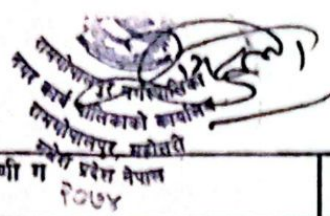 रामगोपालपुर नगरपालिका
नगर कार्यपालिकाको कार्यालय
रामगोपालपुर, महोत्तरी
मधेश प्रदेश नेपाल
२०७४
णी ग